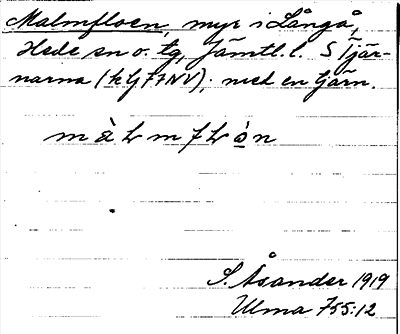 Malmfloen, myr i Långå,
Hede sn o. tg, Jämtl. l. S Tjär-
narna (kbl 77NV); med en tjärn.
S. Åsander 1919
Ulma 755:12